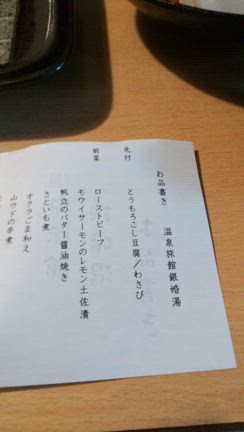 お品書き　温泉旅館銀婚湯
先付　とうもろこし豆腐／わさび
前菜　ローストビーフ
モウイサーモンのレモン土佐漬
帆立のバター醤油焼き
さといも煮
オクラごま和え
山ウドの辛煮